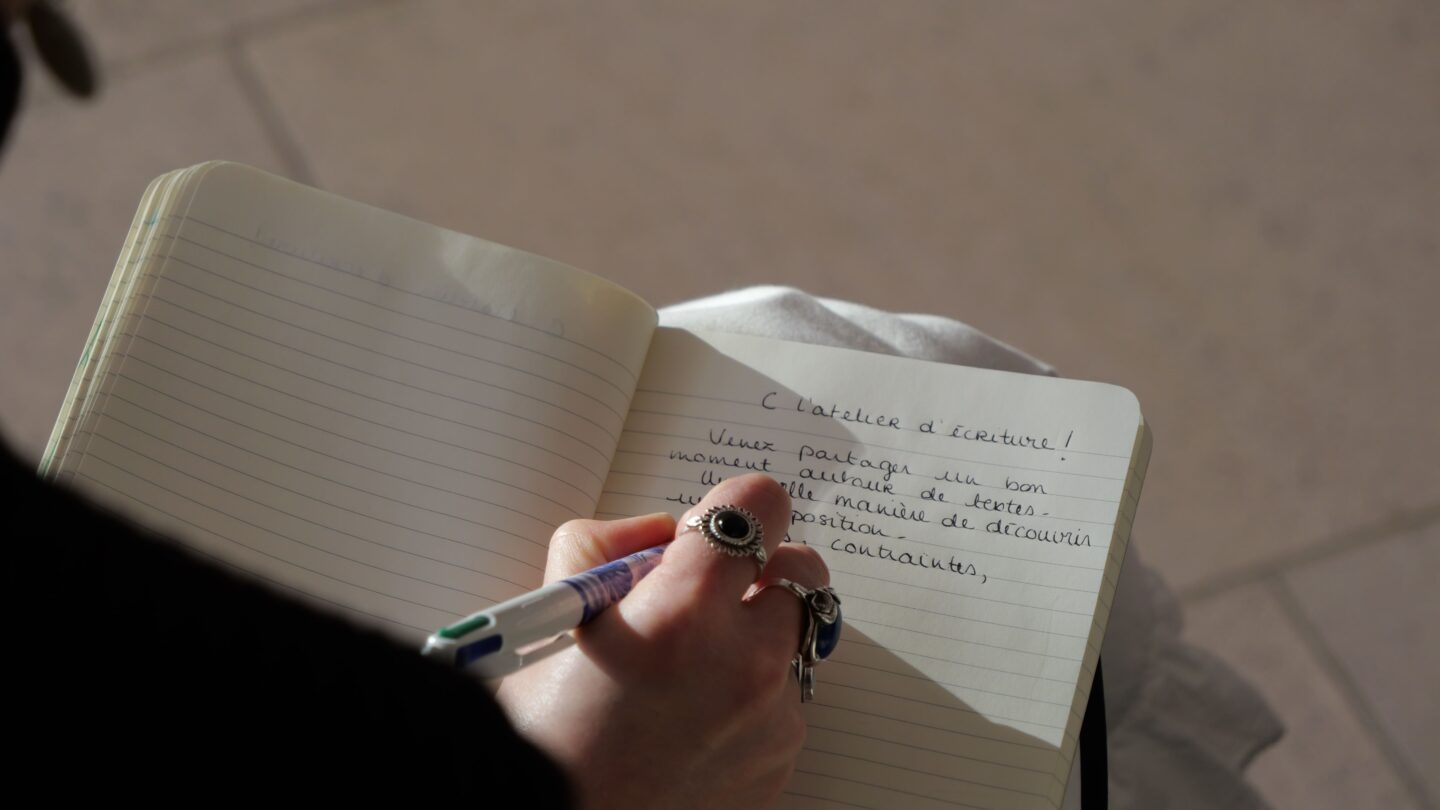 C l'atelier d'écriture !
Venez partager un bon
moment autour de textes.
manière de découvrir
position.
, contraintes,